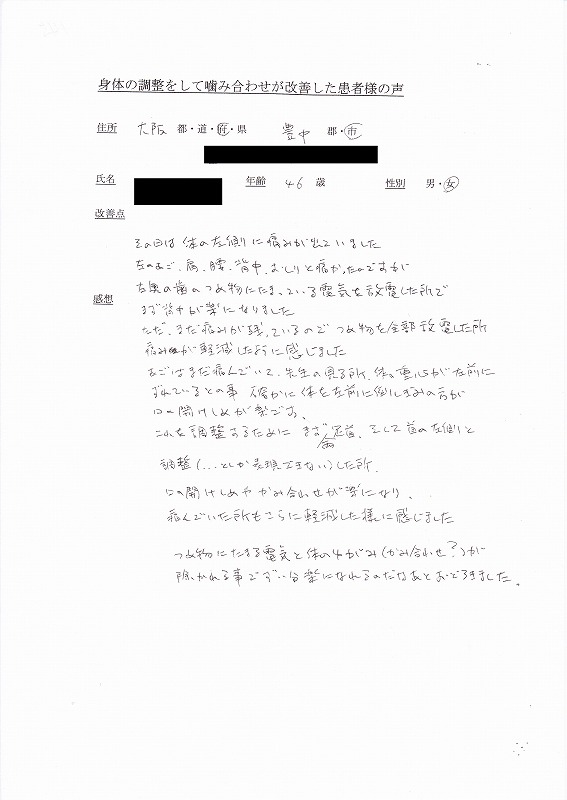 身体の調整をして噛み合わせが改善した患者様の声
住所 大阪 都・道・府・県 豊中 郡・市
氏名 年齢 46 歳 性別 男・女
改善点
感想
その日は体の左側に痛みが出ていました
左のあご、肩、腰、背中、おしりと痛かったのですが
左奥の歯のつめ物にたまっている電気を放電した所で
まず背中が楽になりました
ただ、まだ痛みが残っているのでつめ物を全部放電した所
痛みが軽減したように感じました
あごはまだ痛んでいて、先生の見る所、体の重心が左前に
ずれているとの事 確かに体を左前に倒しぎみの方が
口の開けしめが楽です。
これを調整するために まず足首、そして首の左側と
調整(…としか表現できない)した所、
口の開けしめやかみ合わせが楽になり、
痛んでいた所もさらに軽減した様に感じました
つめ物にたまる電気と体のゆがみ(かみ合わせ?)が
除かれる事でずい分楽になれるのだなあとおどろきました。